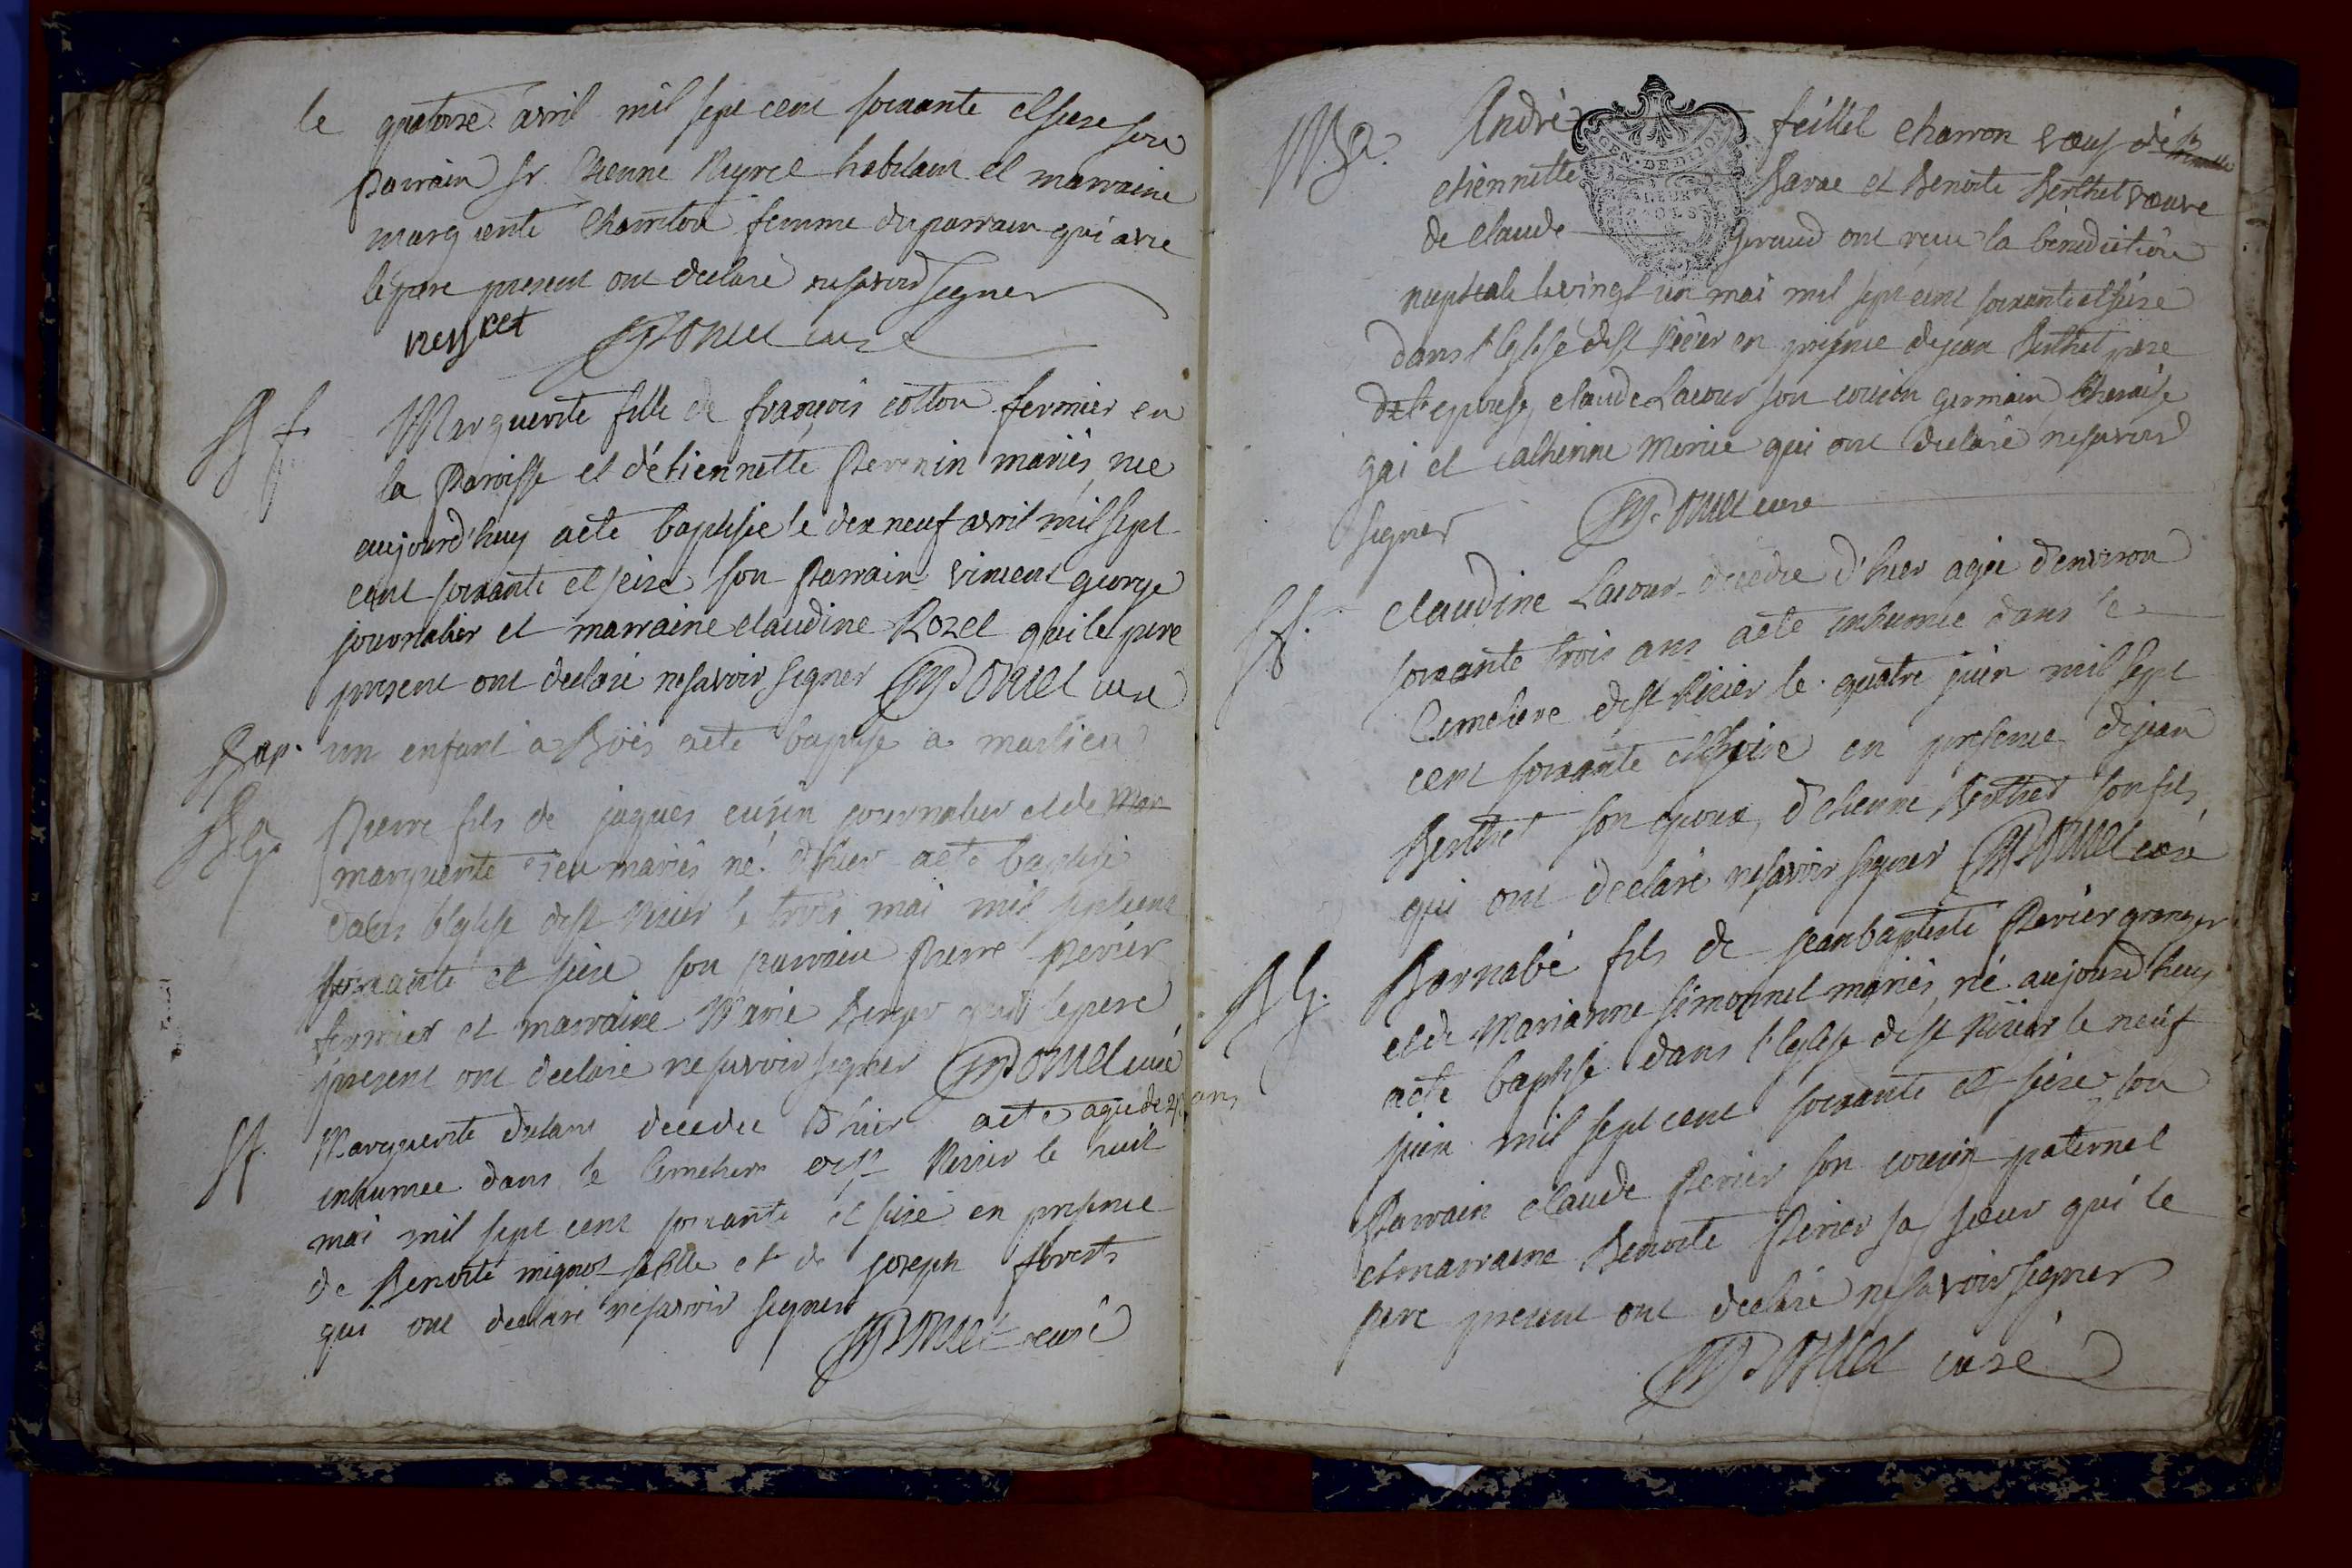 le quatorze avril mil sept cent soixante et seize son
parrain sr. Etienne habitant et marraine
marguerite femme du parrain qui avec
le pere present ont declaré ne savoir signer
curé
B f. Marguerite fille de françois cotton fermier en
la Paroisse et d'étiennette Pevenin mariés, née
aujourd'huy a eté baptisée le dix neuf avril mil sept
cent soixante et seize son Parrain vincent george
journalier et marraine claudine Rozel qui le pere
present ont declaré ne savoir signer curé
Bap. un enfant a Bois a eté baptisé a marlieu
B g. Pierre fils de jaques cusin journalier et de Mar
marguerite mariés né d'hier a eté baptisé
dans l'Eglise de st le trois mai mil sept cent
soixante et seize son parrain Pierre Perier
fermier et marraine Marie Berger qui le pere
present ont declaré ne savoir signer curé
Sf. Marguerite dulans decedee d'hier a eté agee de ans
inhumee dans le Cimetiere de st le huit
mai mil sept cent soixante et seize en presence
de Benoite mignot sa fille et de joseph
qui ont declaré ne savoir signer
curé
M.g. André feillel charron veuf de
etiennette Bavae et Benoite Berthet veuve
de claude giraud ont reçu la bénédiction
nuptiale le vingt un mai mil sept cent soixante et seize
dans l'Eglise de st en presence de jean Berthet pere
de l'epouse, claude Lacour son cousin germain,
gai et catherine Morice qui ont declaré ne savoir
signer curé
Sf. claudine Lacour decedée d'hier agée d'environ
soixante trois ans a eté inhumée dans le
Cimetiere de st le quatre juin mil sept
cent soixante et seize en presence de jean
Berthet son epoux, d'etienne Berthet son fils
qui ont declaré ne savoir signer curé
B g. Barnabé fils de jean baptiste Perier granger
et de Marianne simonnet mariés, né aujourd'huy
a eté baptisé dans l'Eglise de st le neuf
juin mil sept cent soixante et seize son
Parrain claude Perier son cousin paternel
et marraine Benoite Perier sa soeur qui le
pere present ont declaré ne savoir signer
curé